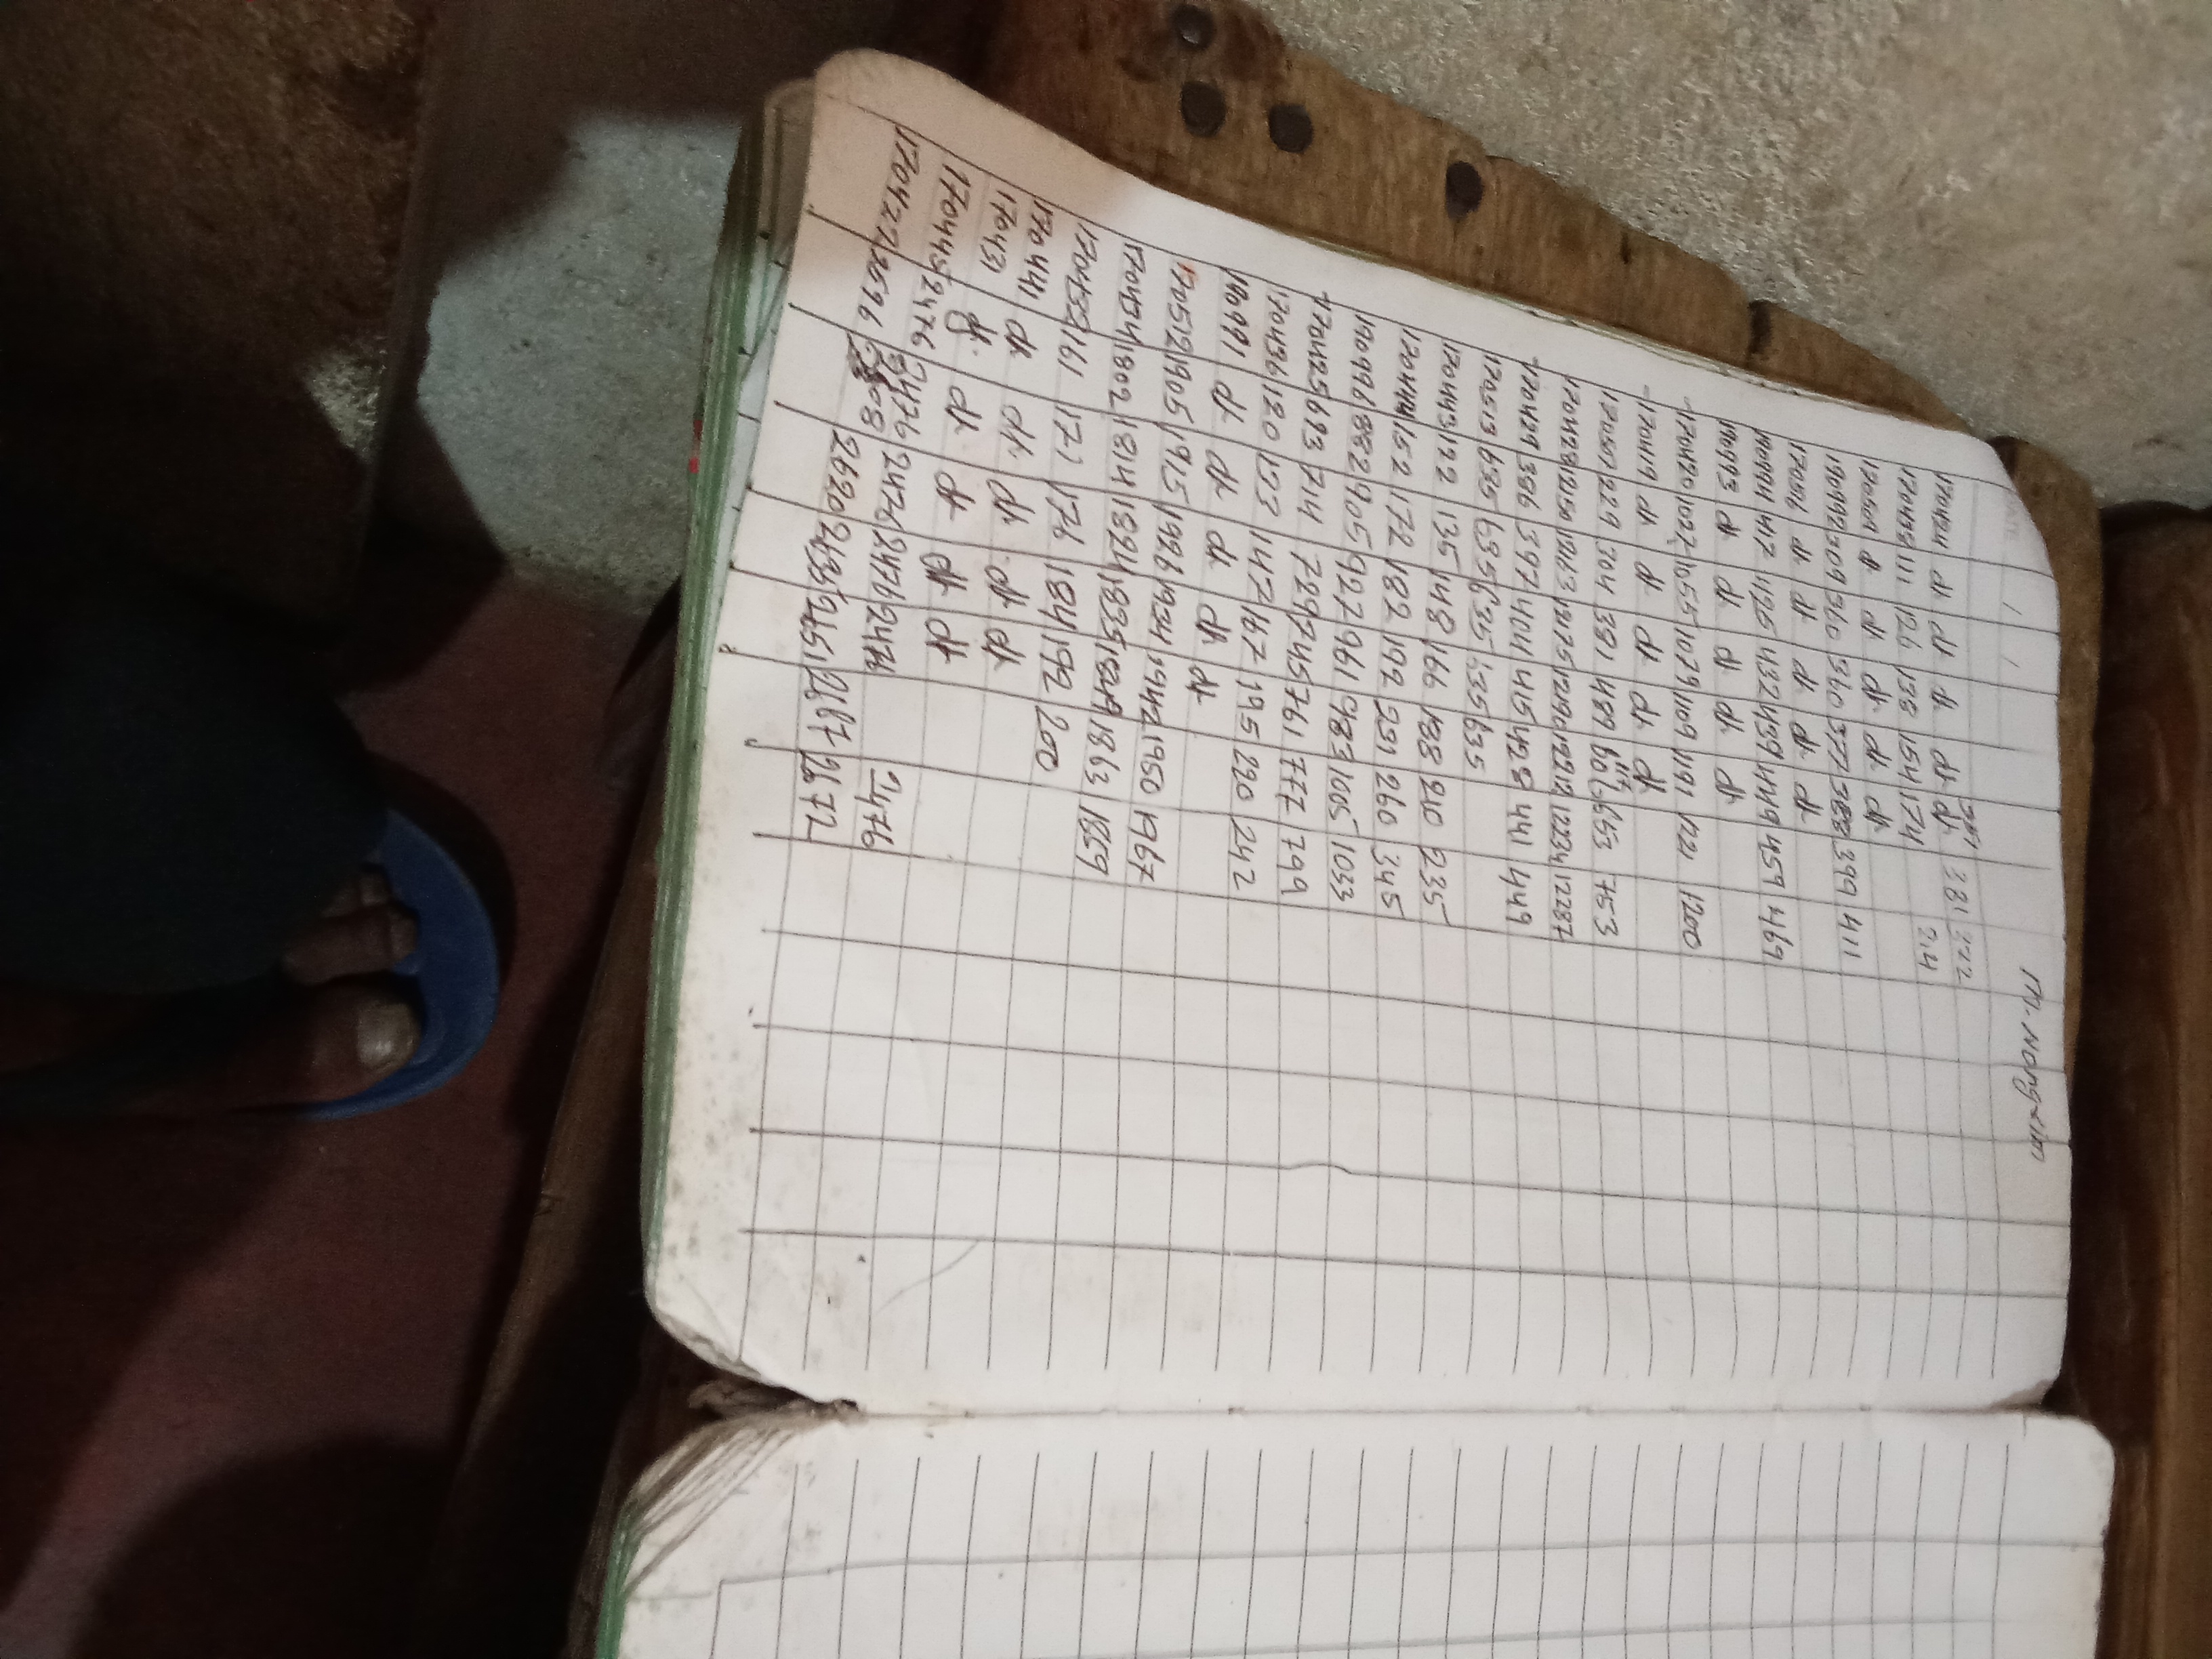 M. Nongrim
170424 dk dk dk dk dk 381
170439 111 126 138 154 174
170509 dk dk dk dk dk
190992 309 360 360 377 388 399 411
dk dk dk dk
190994 417 425 432 439 449 459 469
190993 dk dk dk dk dk
170420 1027 1055 1079 1109 1191 1200
170419 dk dk dk dk dk
170507 229 304 381 489 653 753
170428 12234 12287
170429 386 397 404 415 428 441 449
170513 635 635 635 635 635
170443 122 135 148 166 188 210 235
170444 152 172 182 192 231 260 345
190996 882 905 927 961 983 1005 1033
170425 693 714 729 745 761 777 799
170436 120 133 147 167 195 220 242
190991 dk dk dk dk dk
170512 1905 1915 1926 1934 1942 1950 1967
170434 1802 1814 1824 1835 1849 1863 1869
170432 161 171 176 184 192 200
170441 dk dk dk dk dk
170431 dk dk dk dk dk
170445 2476 2476 2476 2476 2476 2476
170422 2596 2608 2620 2635 2651 2667 2672